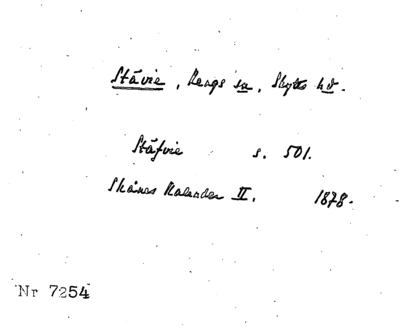 Stävie, Rengs sn, Skytts hd.
Stäfvie s. 501.
Skånes Kalender II. 1878.
Nr 7254